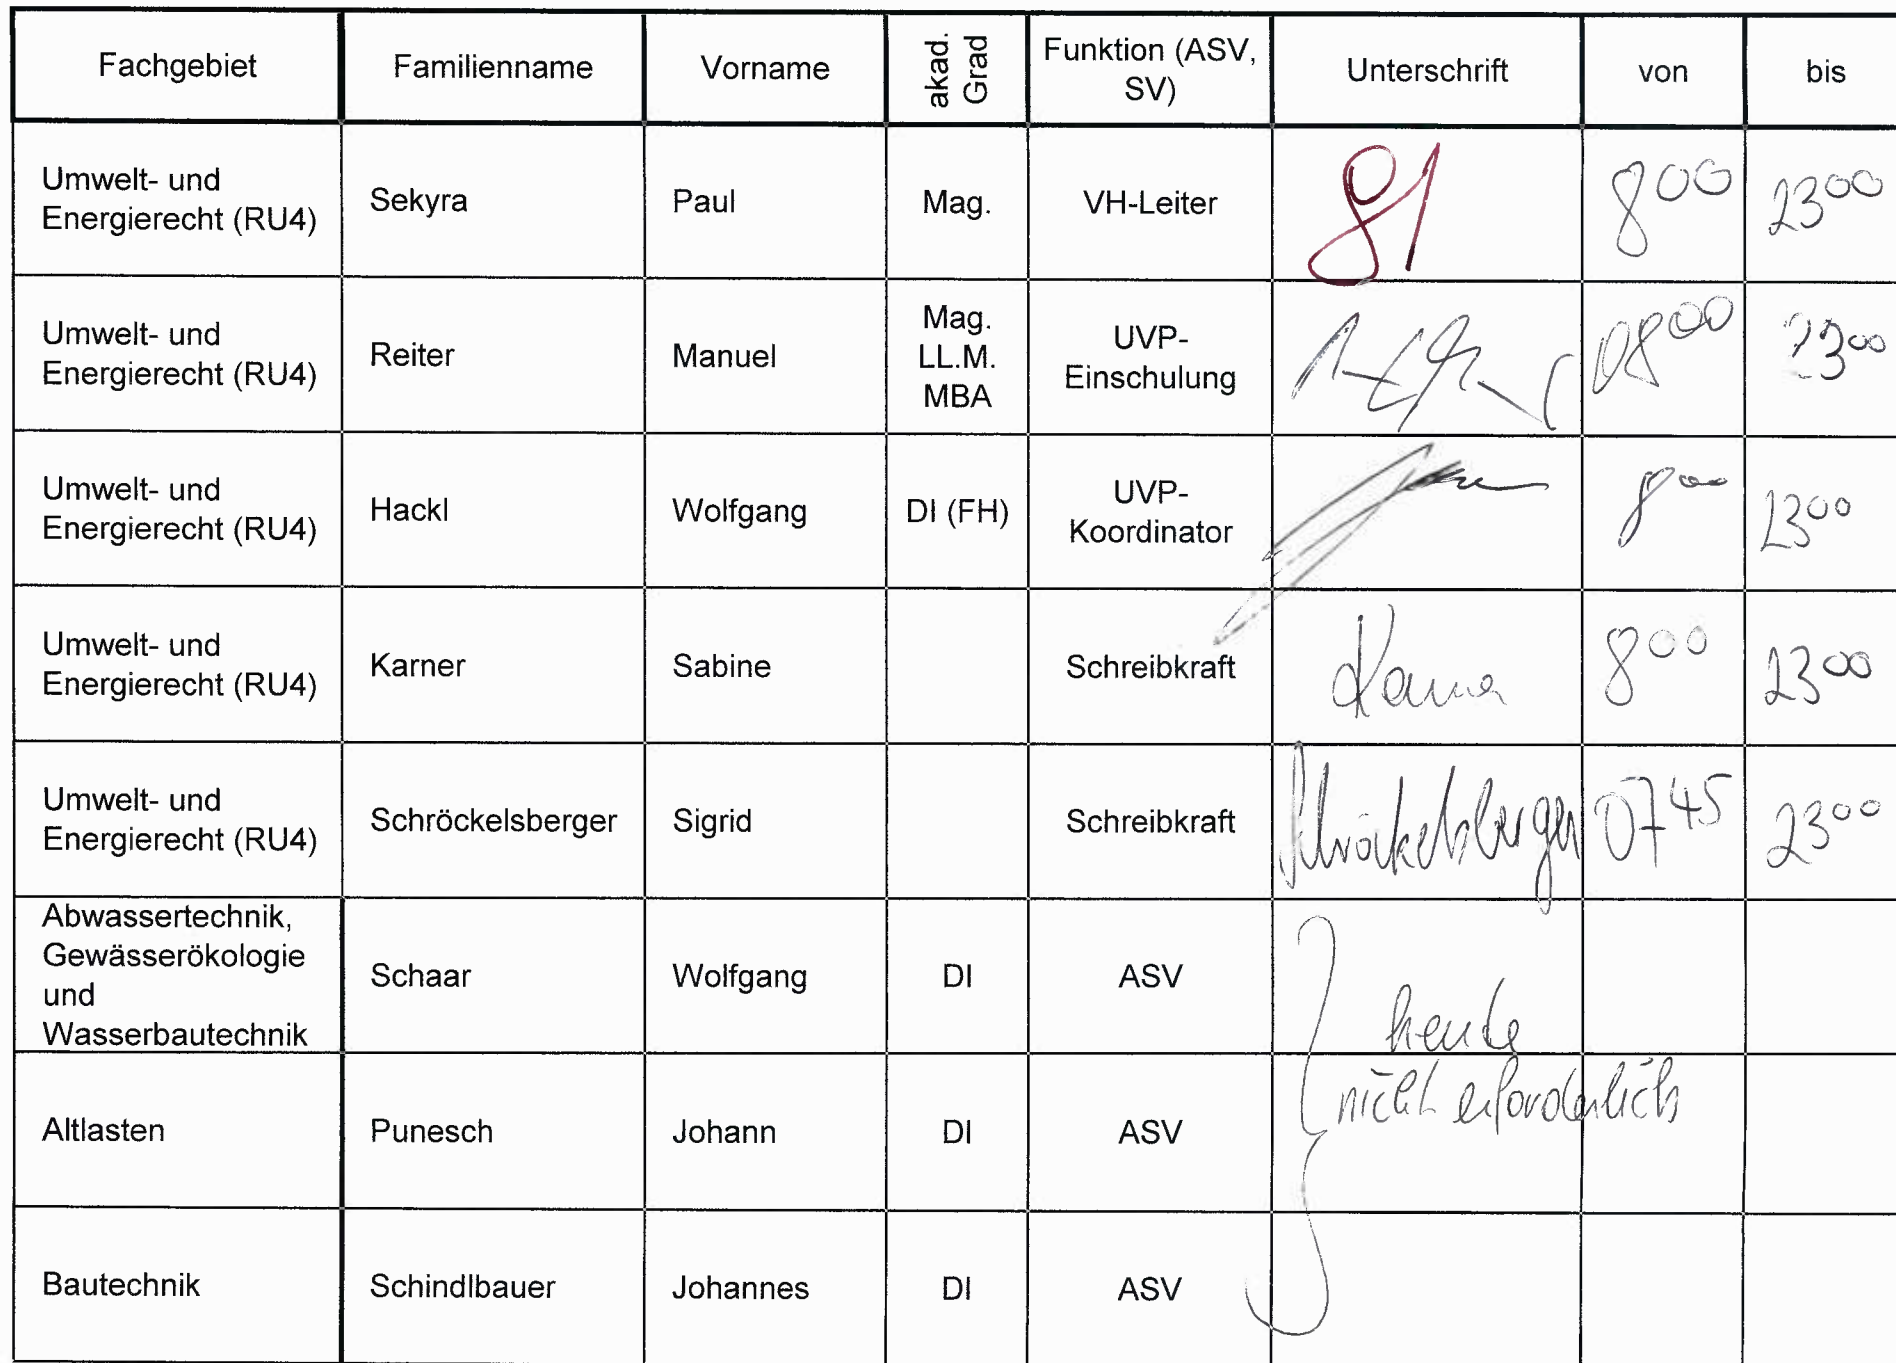 Fachgebiet Familienname Vorname akad. Grad Funktion (ASV, SV) Unterschrift von bis
Umwelt- und Energierecht (RU4) Sekyra Paul Mag. VH-Leiter 8 00 23 00
Umwelt- und Energierecht (RU4) Reiter Manuel Mag. LL.M. MBA UVP-Einschulung 08 00 23 00
Umwelt- und Energierecht (RU4) Hackl Wolfgang DI (FH) UVP-Koordinator 8 00 23 00
Umwelt- und Energierecht (RU4) Karner Sabine Schreibkraft Karner 8 00 23 00
Umwelt- und Energierecht (RU4) Schröckelsberger Sigrid Schreibkraft Schröckelsberger 07 45 23 00
Abwassertechnik, Gewässerökologie und Wasserbautechnik Schaar Wolfgang DI ASV heute
Altlasten Punesch Johann DI ASV nicht erforderlich
Bautechnik Schindlbauer Johannes DI ASV